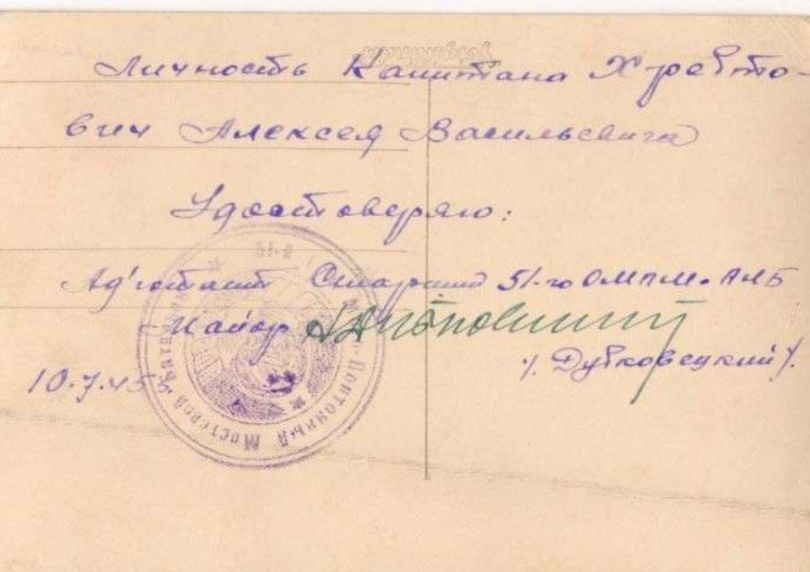 Личность Капитана Хребто-
вич Алексея Васильевича
Удостоверяю:
Ад'ютант Старший 51-го
Майор
/. Дубковецкий/.
10.7.45
51-й
Понтонный Мостовой Батальон